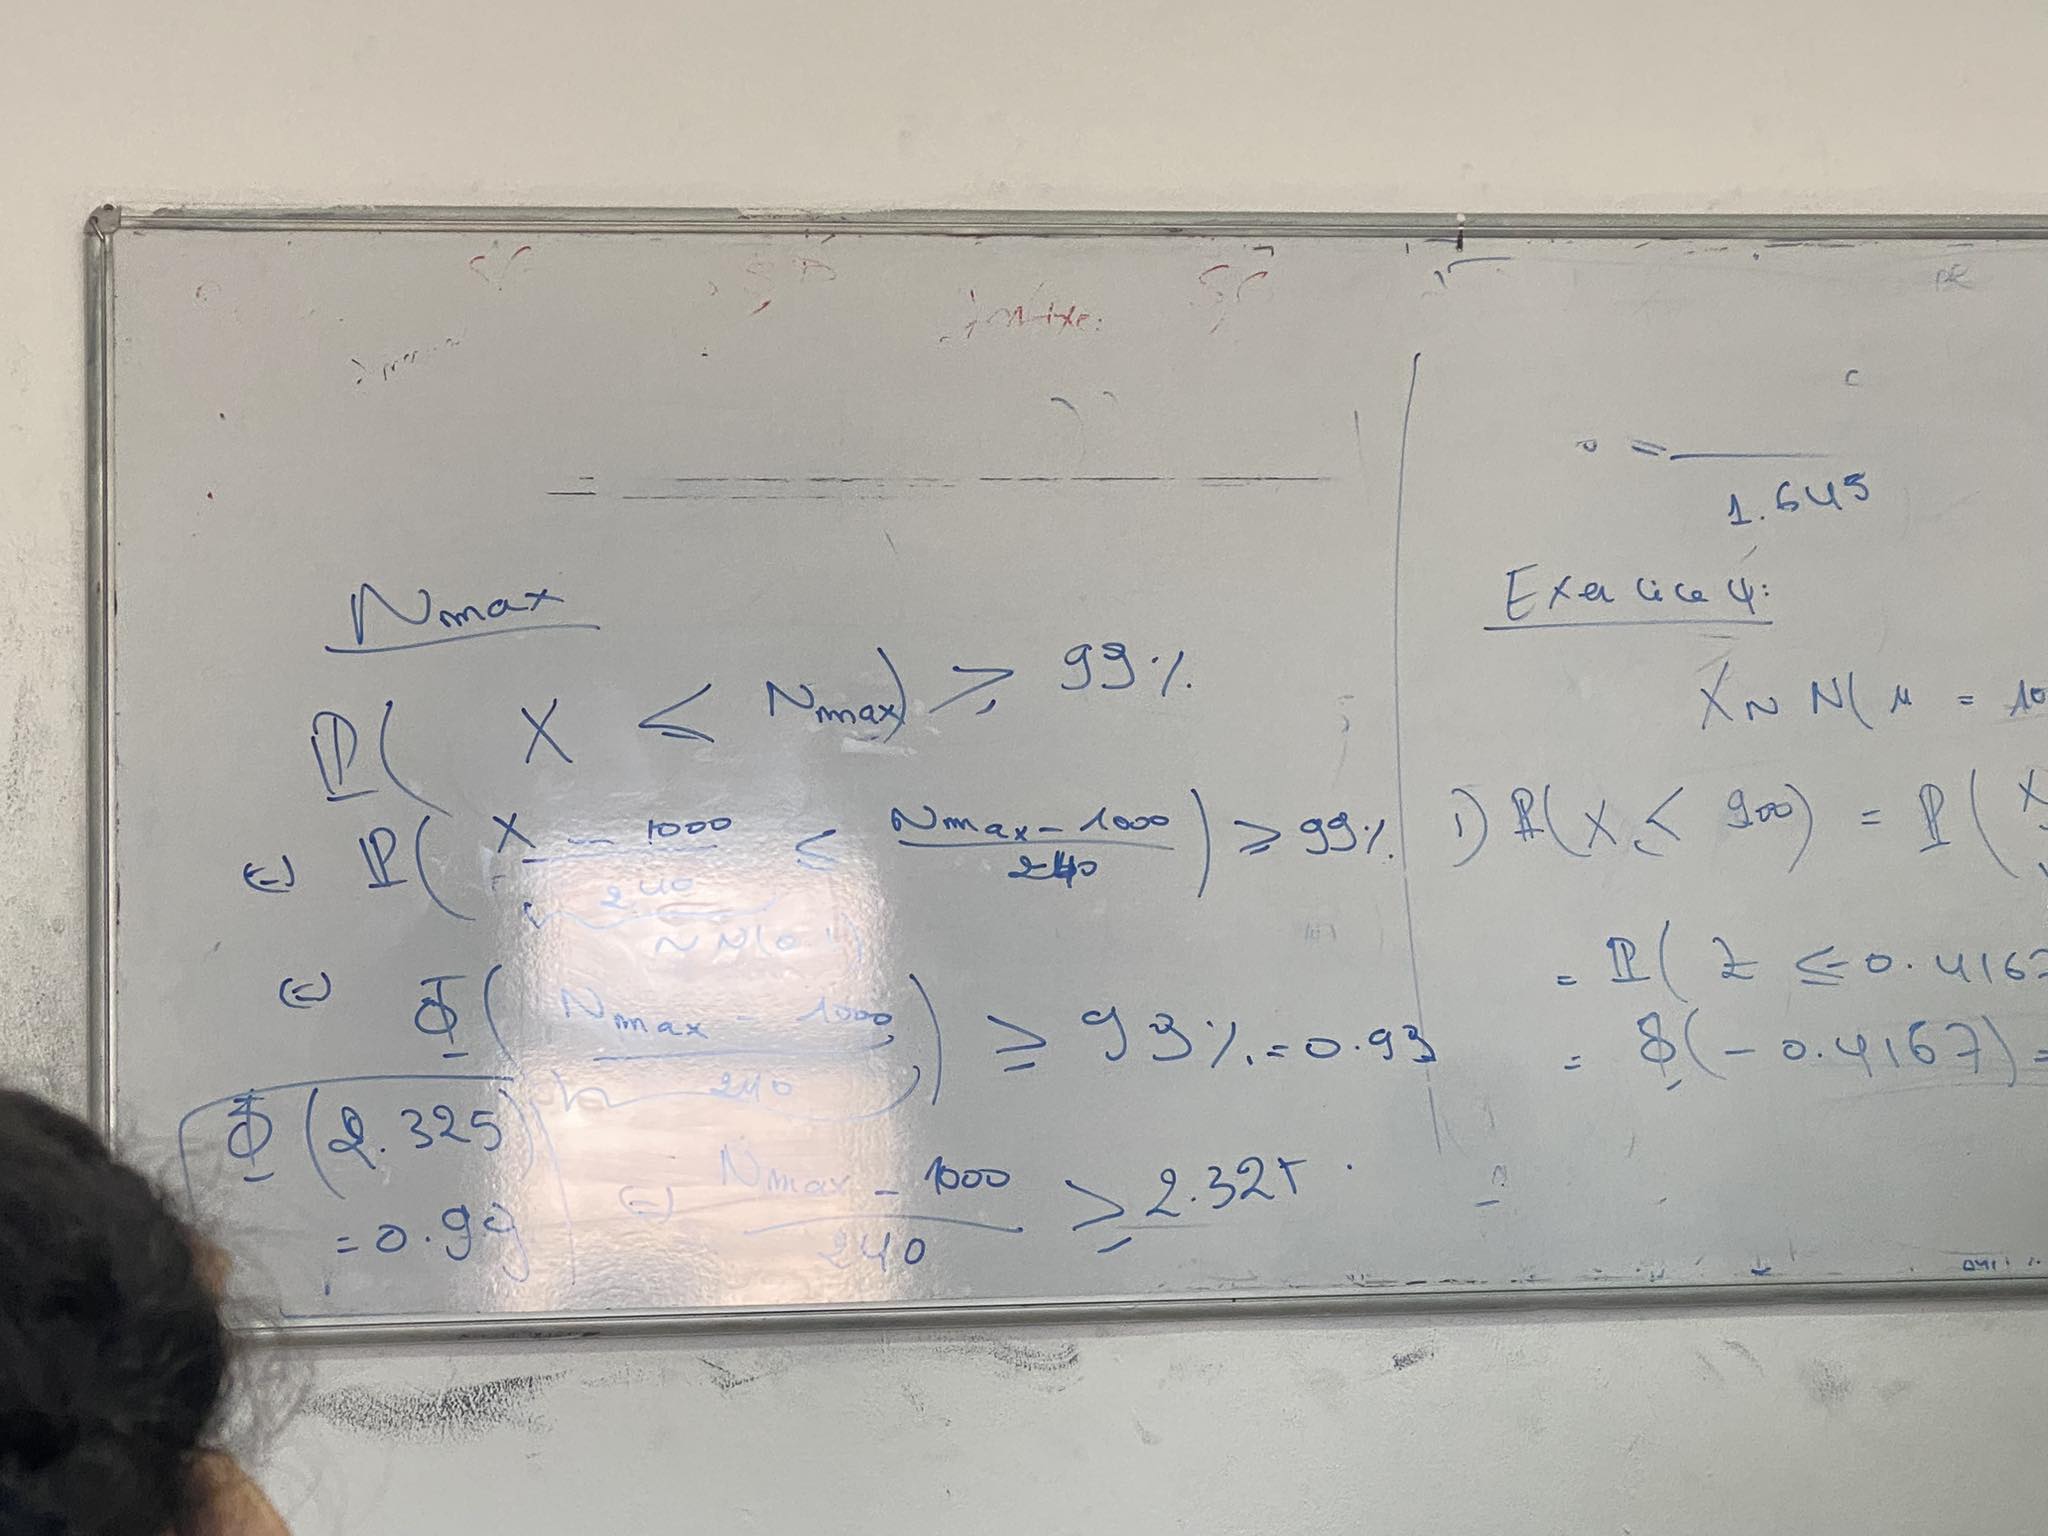 Nmax
ℙ( X < Nmax) ≥ 99%
(=) ℙ( X - 1000 / 240 ≤ Nmax - 1000 / 240 ) ≥ 99%
~ N(0 1)
(=) Φ( Nmax - 1000 / 240 ) ≥ 99% = 0.99
Φ(2.325)
= 0.99
(=) Nmax - 1000 / 240 ≥ 2.325
1.645
Exercice 4:
X ~ N( μ = 10
1) ℙ(X < 900) = ℙ( X
= ℙ( Z ≤ -0.4167
= Φ(-0.4167) =